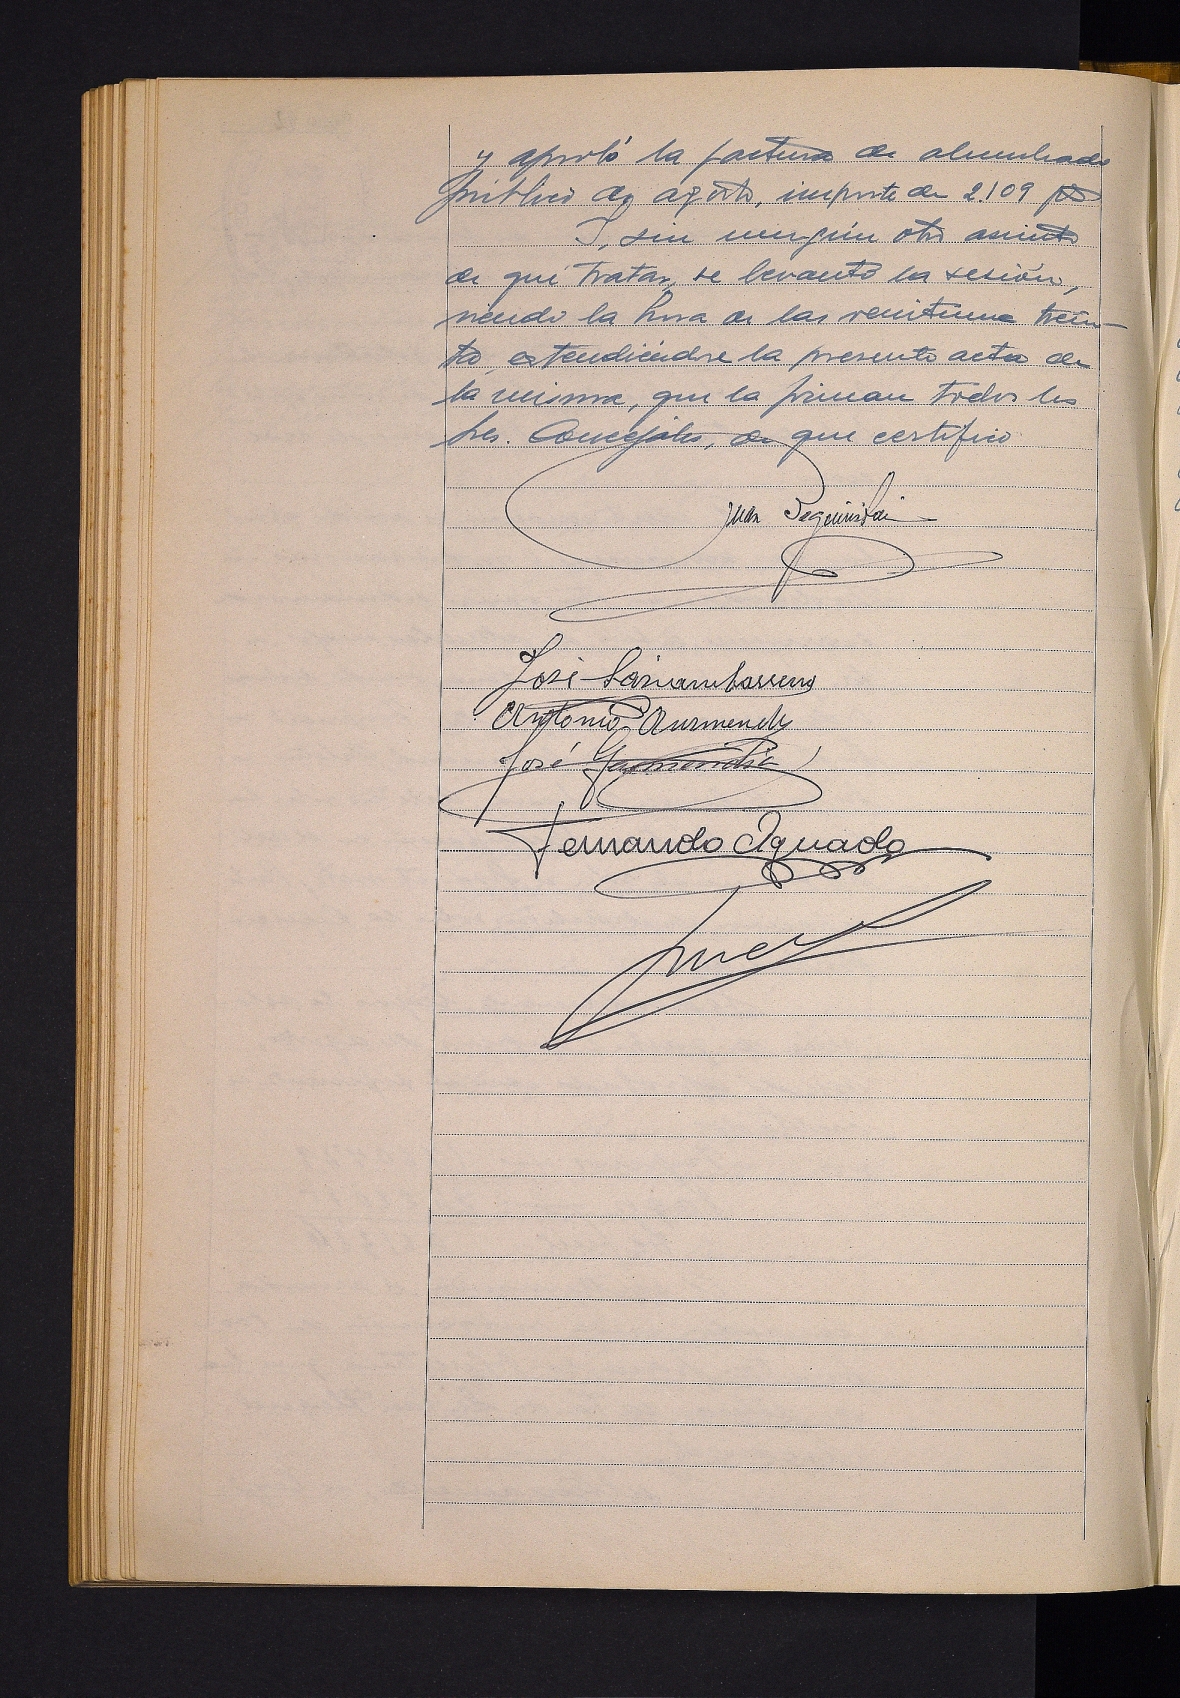 y aprobó la factura de alumbrado
público de agosto, importe de 2.109 pts
Y, sin ningún otro asunto
de qué tratar, se levantó la sesión,
siendo la hora de las veintiuna trein-
ta, extendiéndose la presente acta de
la misma, que la firman todos los
Sres. Concejales, de que certifico
Juan Beguiristai
José
Antonio Aurmendy
José Garmendia
Fernando Aguado